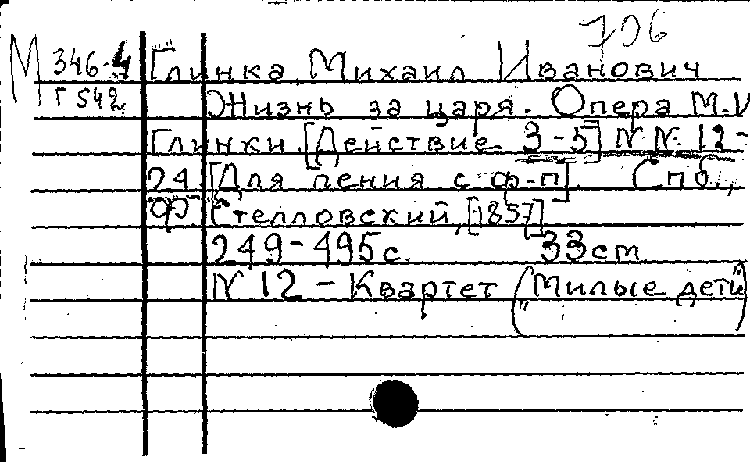 706
М 346-4 Глинка, Михаил Иванович
Г 542 Жизнь за царя. Опера М.И
Глинки. [Действие 3-5] N N 12-
24. [Для пения с ф-п]. Спб.,
Ф. Стелловский, [1857]
249-495 с. 33 см
N 12 - Квартет ("Милые дети")